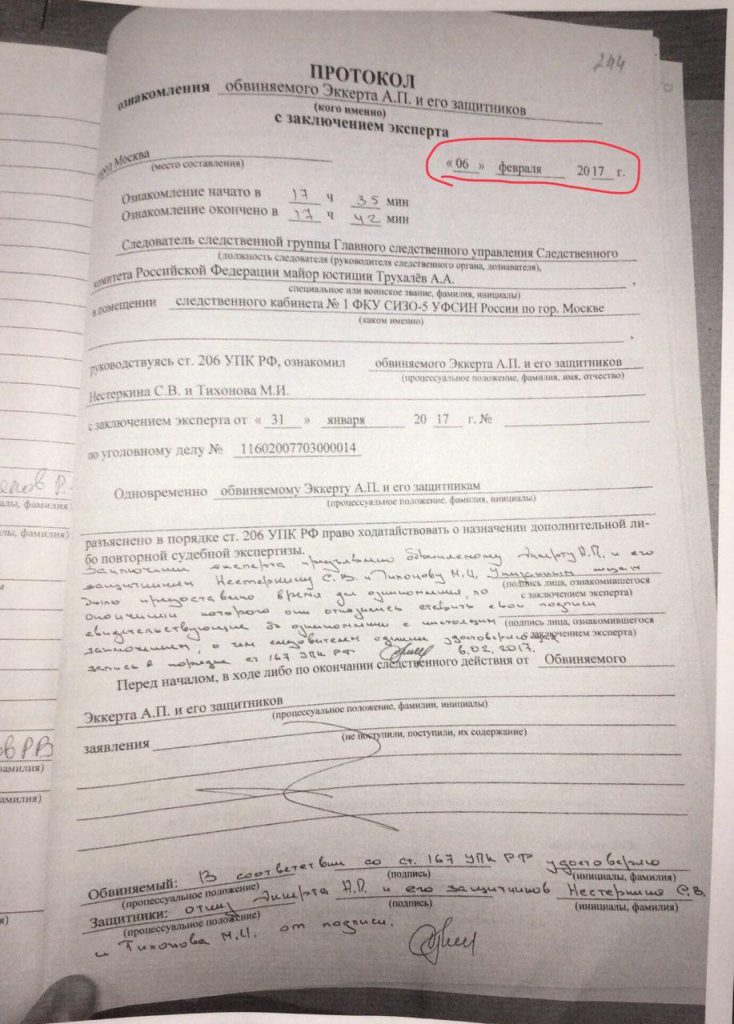 244
ПРОТОКОЛ
ознакомления обвиняемого Эккерта А.П. и его защитников
(кого именно)
с заключением эксперта
город Москва
(место составления)
« 06 » февраля 20 17 г.
Ознакомление начато в 17 ч 35 мин
Ознакомление окончено в 17 ч 42 мин
Следователь следственной группы Главного следственного управления Следственного
(должность следователя (руководителя следственного органа, дознавателя),
комитета Российской Федерации майор юстиции Трухалёв А.А.
специальное или воинское звание, фамилия, инициалы)
в помещении следственного кабинета № 1 ФКУ СИЗО-5 УФСИН России по гор. Москве
(каком именно)
руководствуясь ст. 206 УПК РФ, ознакомил обвиняемого Эккерта А.П. и его защитников
(процессуальное положение, фамилия, имя, отчество)
Нестеркина С.В. и Тихонова М.И.
с заключением эксперта от « 31 » января 20 17 г. №
по уголовному делу № 11602007703000014
Одновременно обвиняемому Эккерту А.П. и его защитникам
(процессуальное положение, фамилия, инициалы)
разъяснено в порядке ст. 206 УПК РФ право ходатайствовать о назначении дополнительной ли-
бо повторной судебной экспертизы.
Заключение эксперта предъявлено обвиняемому Эккерту А.П. и его
защитникам Нестеркину С.В. и Тихонову М.И. Указанным лицам
(подпись лица, ознакомившегося
было предоставлено время для ознакомления, по
с заключением эксперта)
окончании которого они отказались ставить свои подписи
свидетельствующие об ознакомлении с настоящим
(подпись лица, ознакомившегося
с заключением эксперта)
заключением, о чем следователем удостоверена
запись в порядке ст 167 УПК РФ 6.02.2017.
Перед началом, в ходе либо по окончании следственного действия от Обвиняемого
Эккерта А.П. и его защитников
(процессуальное положение, фамилии, инициалы)
заявления
(не поступили, поступили, их содержание)
Обвиняемый: В соответствии со ст. 167 УПК РФ удостоверяю
(процессуальное положение) (подпись) (инициалы, фамилия)
Защитники: отказ Эккерта А.П. и его защитников Нестеркина С.В.
(процессуальное положение) (подпись) (инициалы, фамилия)
и Тихонова М.И. от подписи.